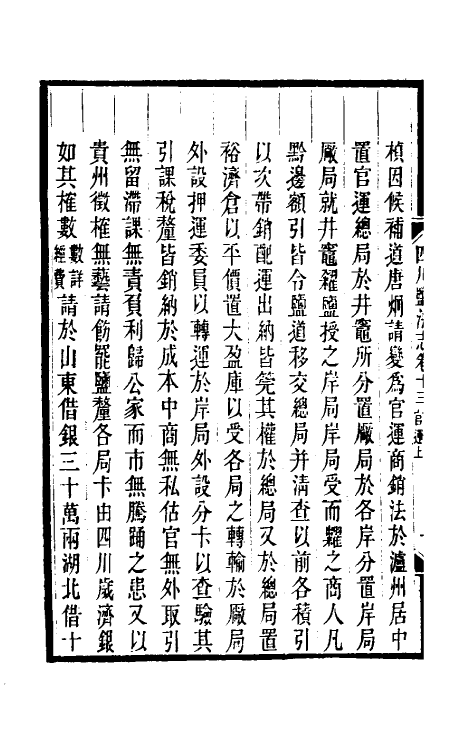 楨因候補道唐炯請變爲官運商銷法於瀘州居中
置官運總局於井竈所分置廠局於各岸分置岸局
廠局就井竈糴鹽授之岸局岸局受而糶之商人凡
黔邊額引皆令鹽道移交總局并清查以前各積引
以次帶銷配運出納皆筦其權於總局又於總局置
裕濟倉以平價置大盈庫以受各局之轉輸於廠局
外設押運委員以轉運於岸局外設分卡以查驗其
引課稅釐皆銷納於成本中商無私估官無外取引
無留滯課無責負利歸公家而市無騰踊之患又以
貴州徵榷無藝請飭罷鹽釐各局卡由四川歲濟銀
如其榷數數詳經費請於山東借銀三十萬兩湖北借十
四川鹽法志卷十三 官運上